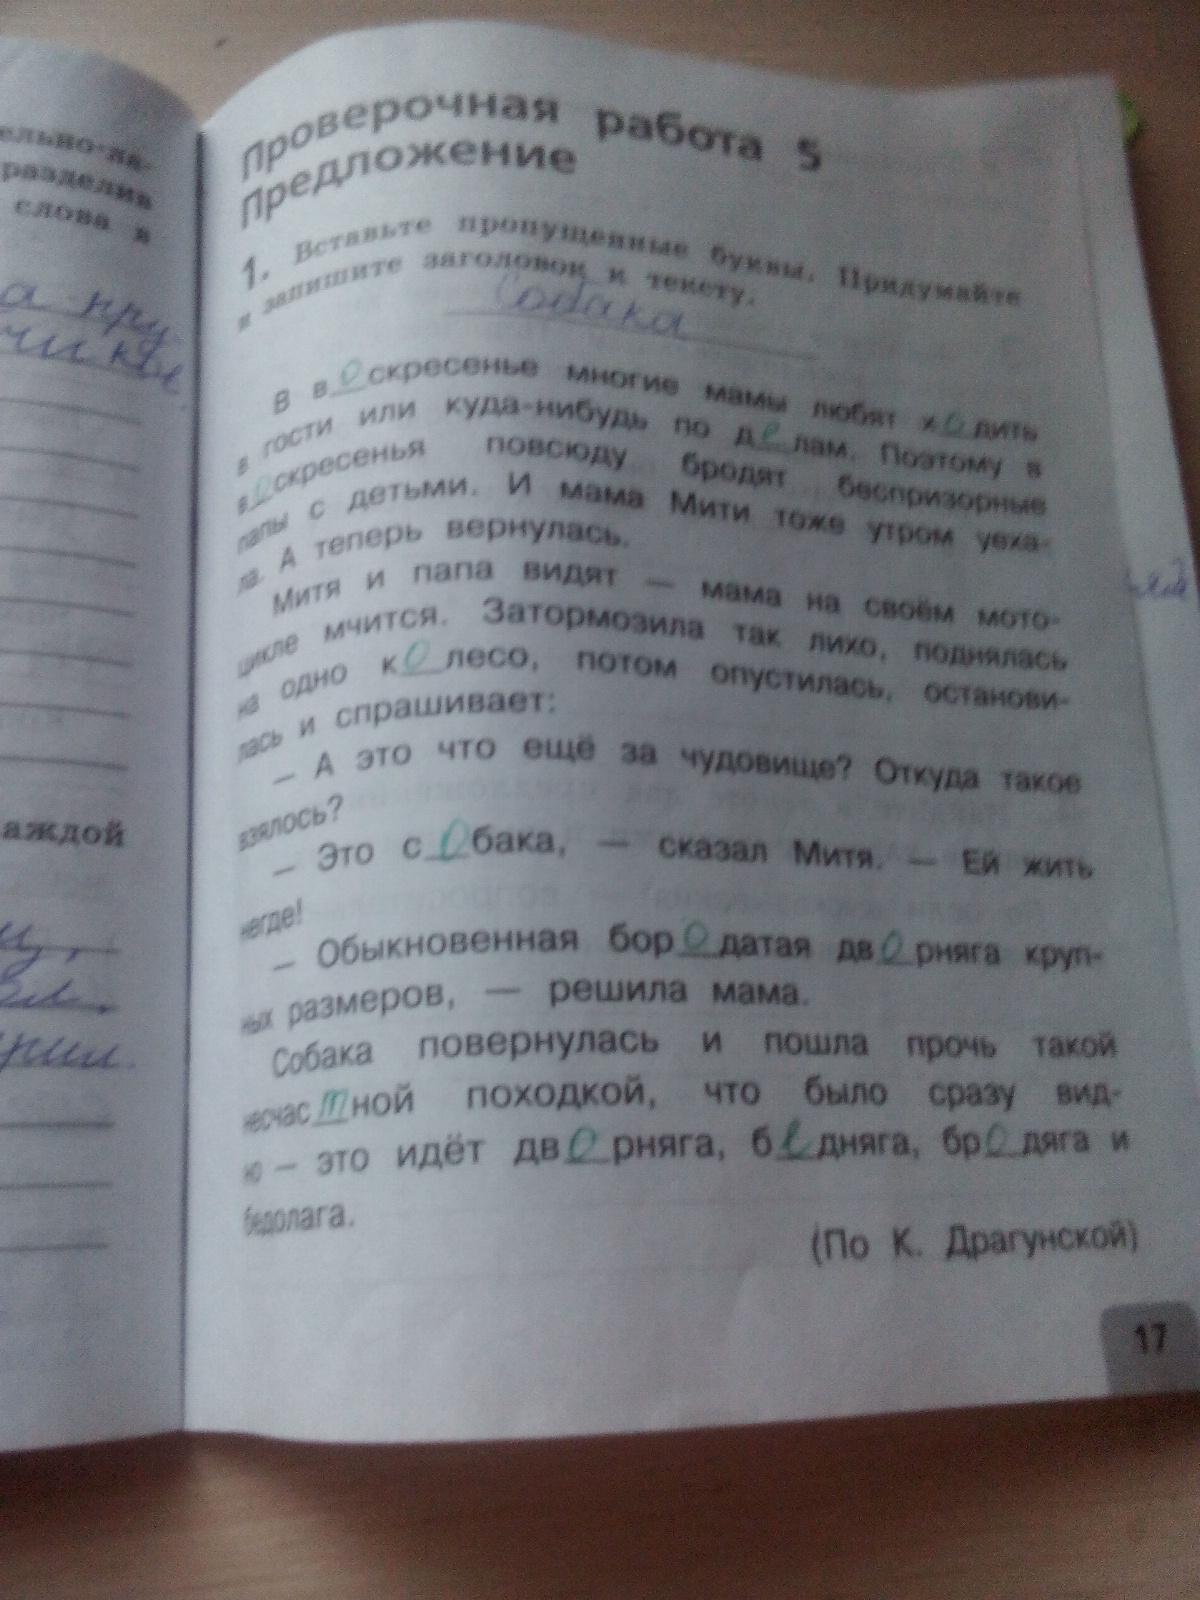 ельно-ла-
разделив
слова в
а пру
чики
аждой
Проверочная работа 5
Предложение
1. Вставьте пропущенные буквы. Придумайте
и запишите заголовок к тексту.
Собака
В воскресенье многие мамы любят ходить
в гости или куда-нибудь по делам. Поэтому в
воскресенья повсюду бродят беспризорные
папы с детьми. И мама Мити тоже утром уеха-
ла. А теперь вернулась.
Митя и папа видят — мама на своём мото-
цикле мчится. Затормозила так лихо, поднялась
на одно колесо, потом опустилась, останови-
лась и спрашивает:
— А это что ещё за чудовище? Откуда такое
взялось?
— Это собака, — сказал Митя. — Ей жить
негде!
— Обыкновенная бородатая дворняга круп-
ных размеров, — решила мама.
Собака повернулась и пошла прочь такой
несчастной походкой, что было сразу вид-
но — это идёт дворняга, бедняга, бродяга и
бедолага.
(По К. Драгунской)
17